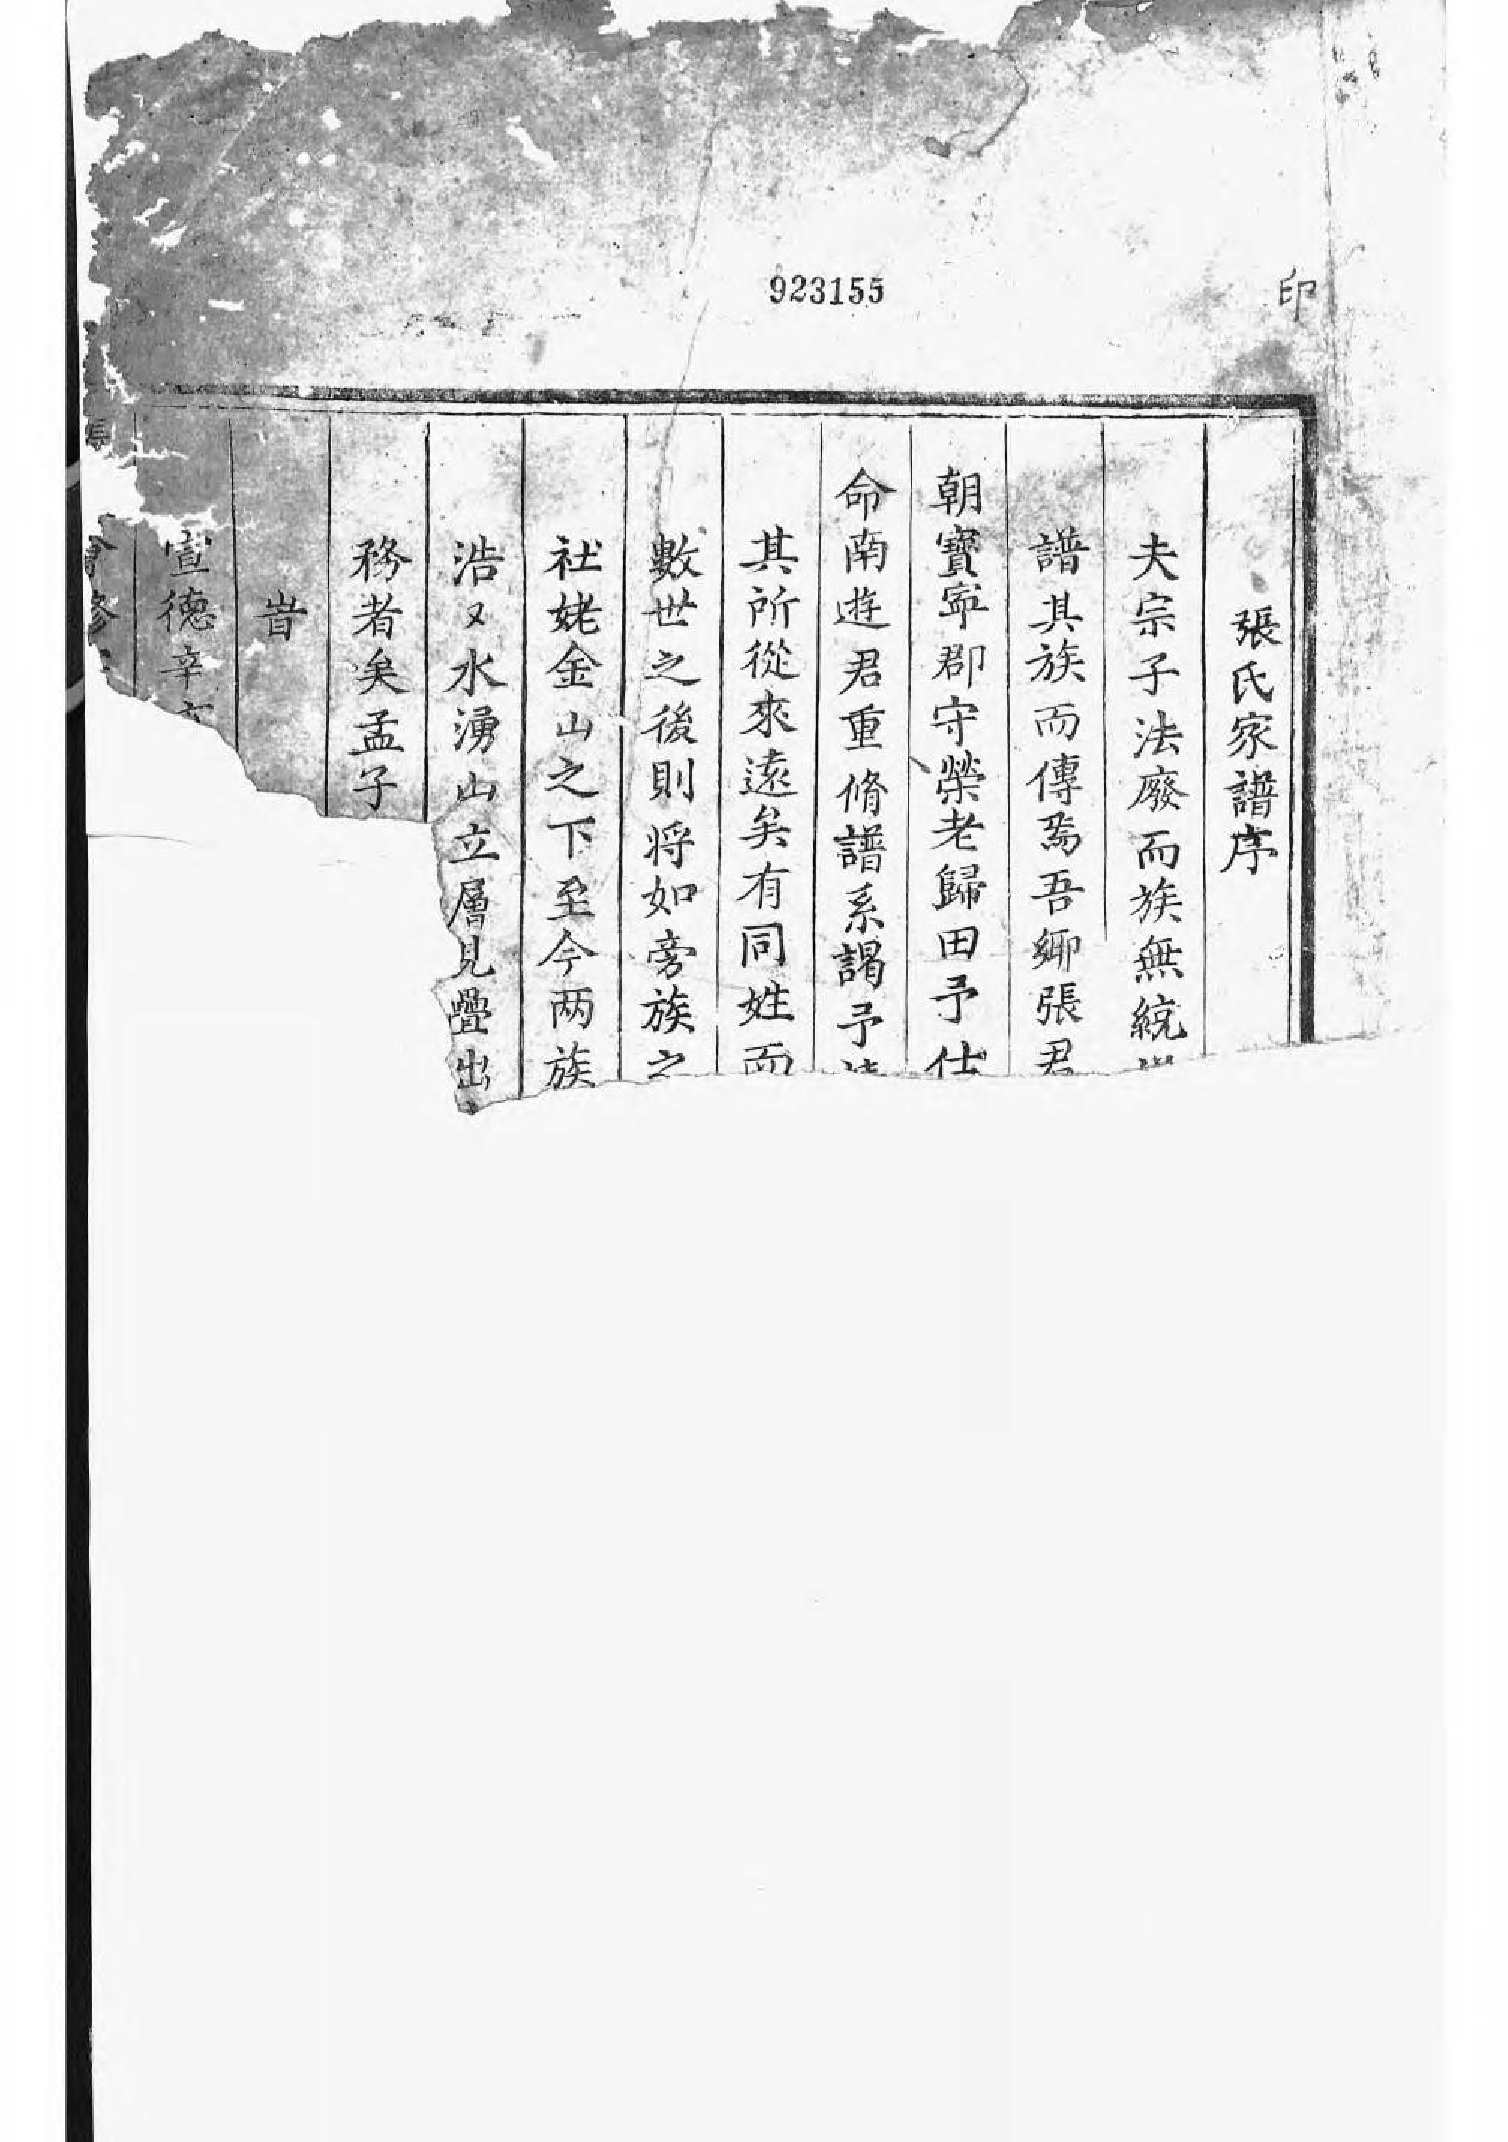 923155
印
張氏家譜序
夫宗子法廢而族無統
譜其族而傳焉吾鄉張君
朝寶寧郡守榮老歸田予仕
命南遊君重脩譜系謁予
其所從來遠矣有同姓而
數世之後則将如旁族之
社姥金山之下至今两族
浩又水湧山立層見疊出
務者矣孟子
旹
宣德辛